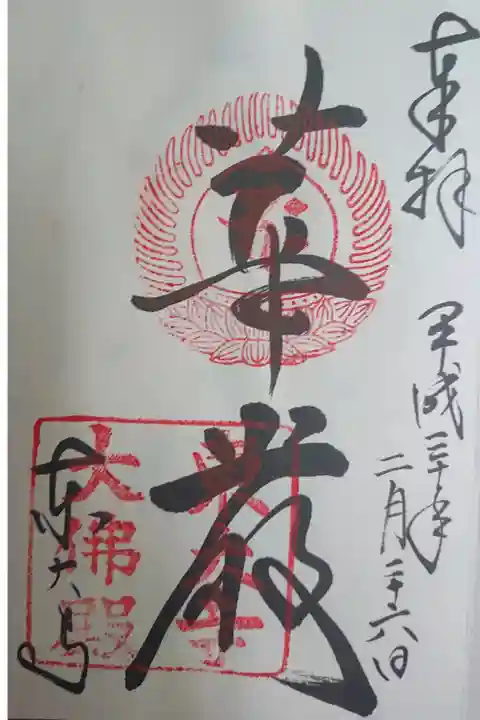 奉拝
平成三十年
二月二十六日
華厳
東大寺
東大寺
大佛殿